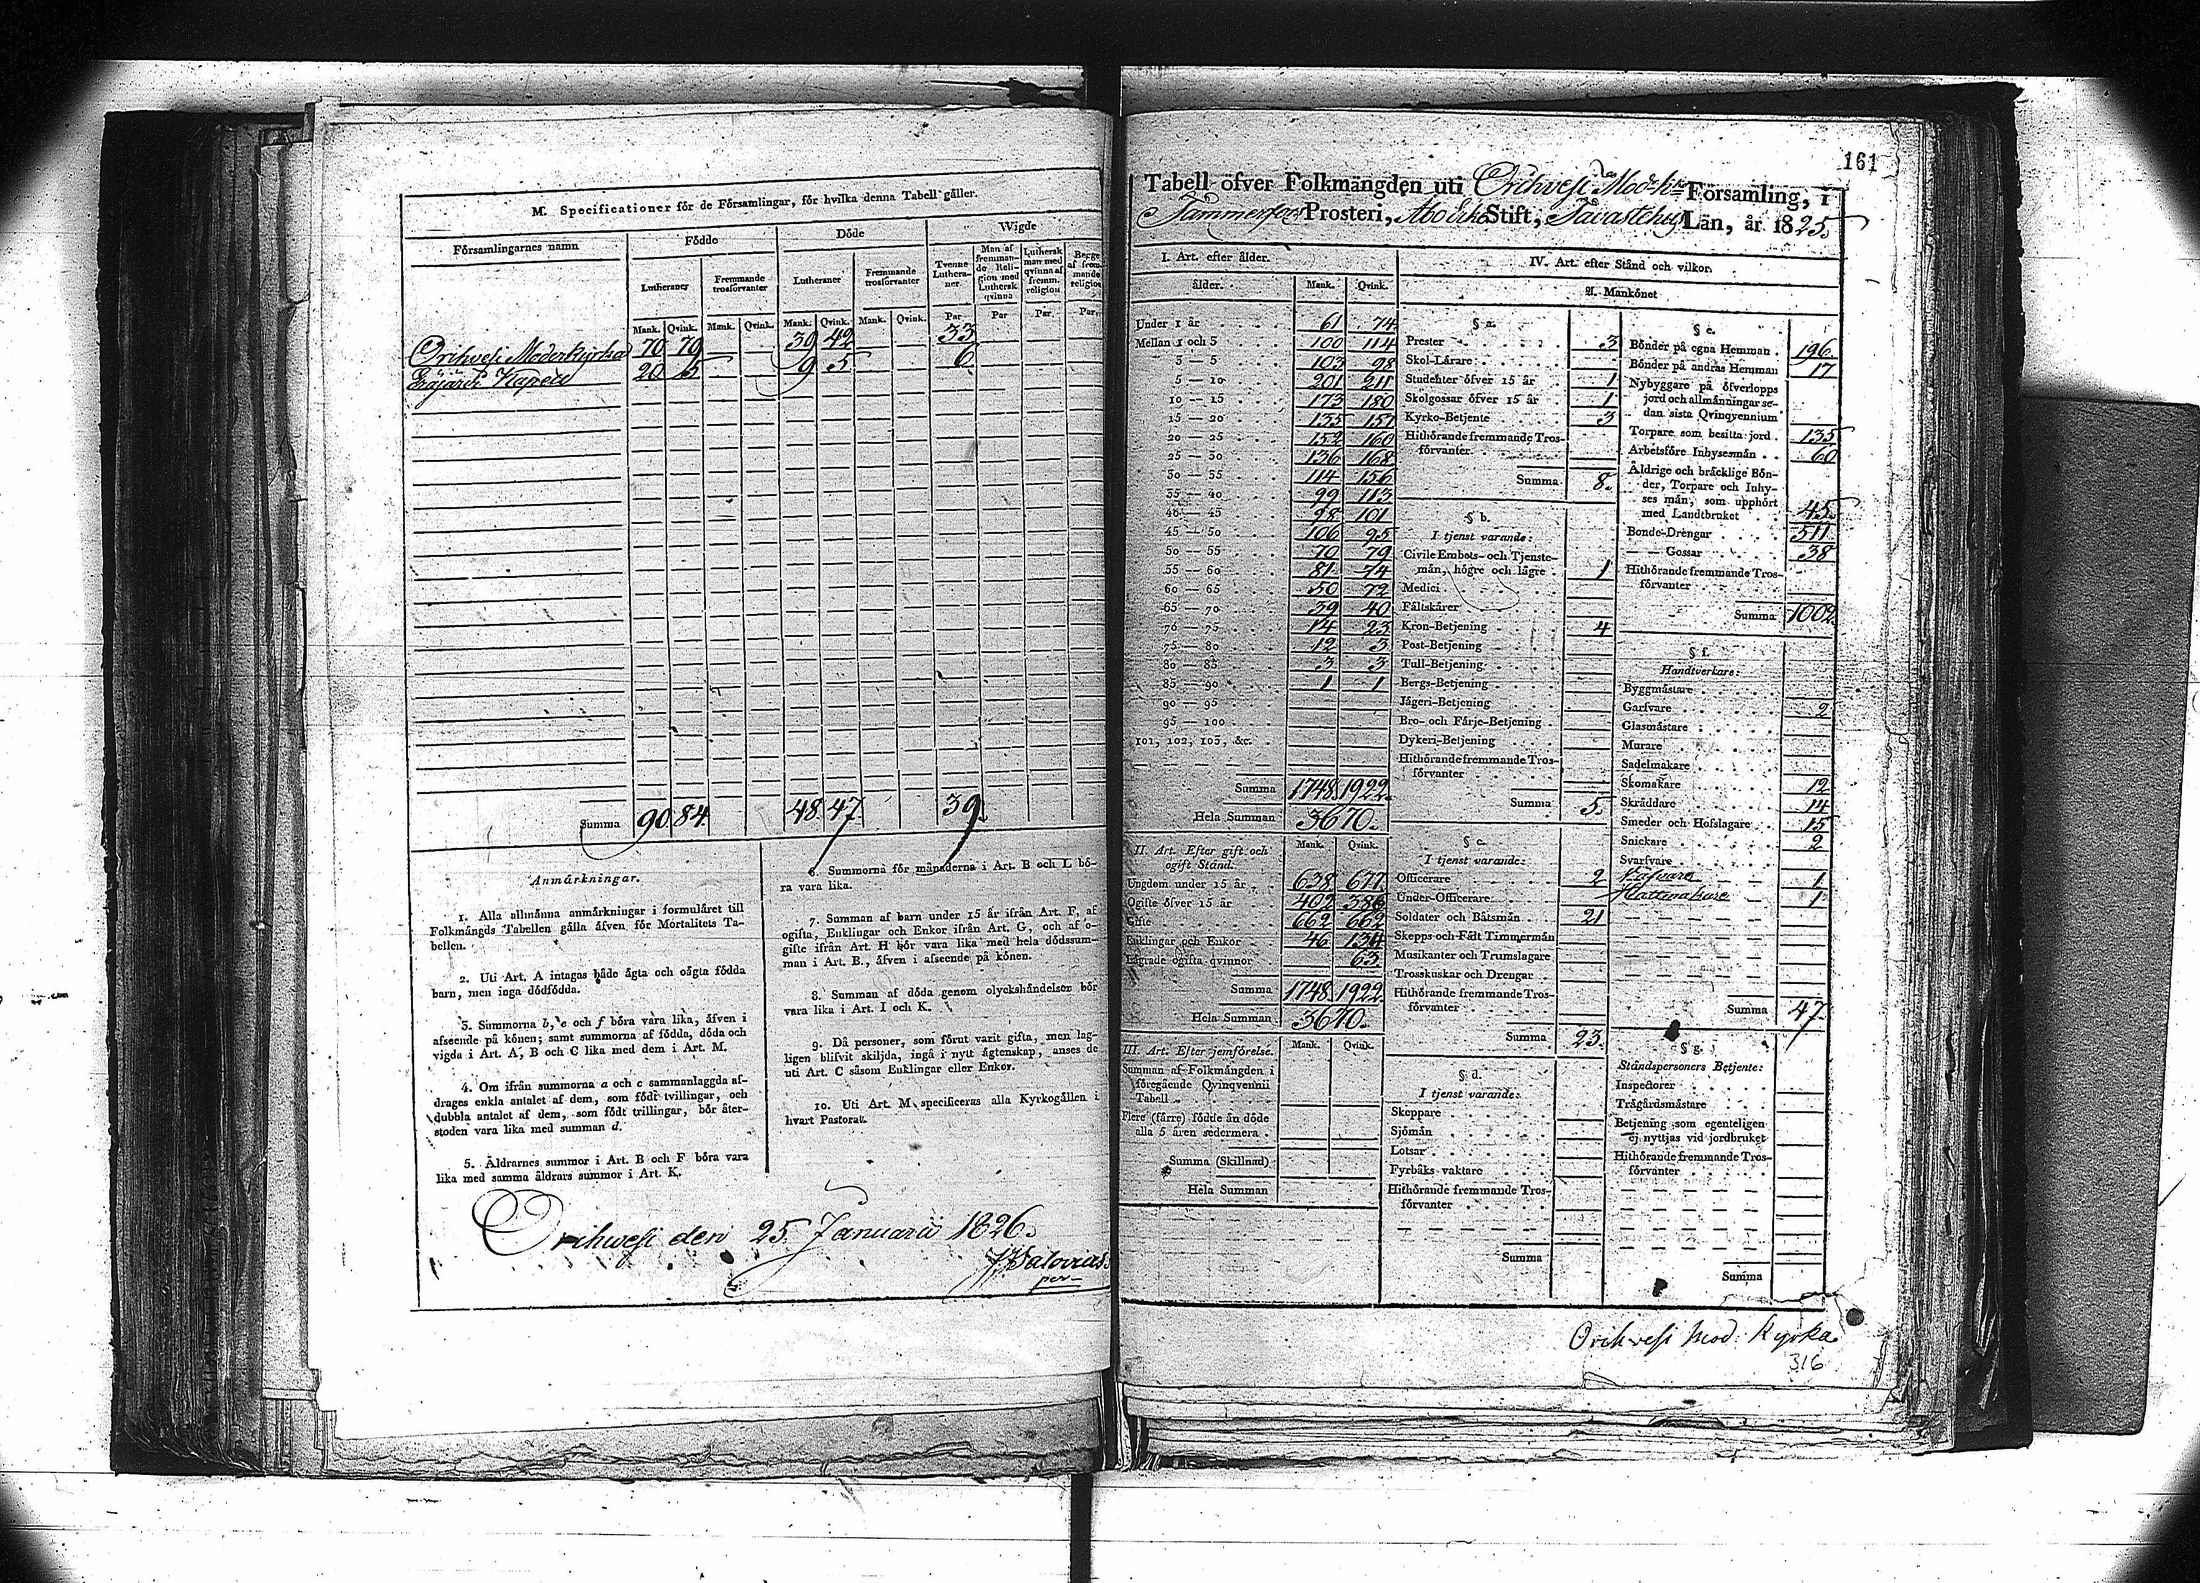 M. Specificationer för de Församlingar, för hvilka denna Tabell gäller.
Församlingarnes namn Födde Döde Wigde
Lutheraner Fremmande trosförvanter Lutheraner Fremmande trosförvanter Tvenne Lutheraner. Man af fremmande Religion med Luthersk qvinna Luthersk man med qvinna af fremm. religion. Begge af fremmande religion
Mank. Qvink. Mank. Qvink. Mank. Qvink. Mank. Qvink. Par Par Par. Par.
Orihvesi Moderkyrka 70 79 39 42 33
Eräjärvi Kapell 20 5 9 5 6
Summa 90 84 48 47 39
Anmärkningar.
1. Alla allmänna anmärkningar i formuläret till
Folkmängds Tabellen gälla äfven för Mortalitets Ta-
bellen.
2. Uti Art. A intagas både ägta och oägta födda
barn, men inga dödfödda.
3. Summorna b, e och f böra vara lika, äfven i
afseende på könen; samt summorna af födda, döda och
vigda i Art. A, B och C lika med dem i Art. M.
4. Om ifrån summorna a och c sammanlaggda af-
drages enkla antalet af dem, som födt tvillingar, och
dubbla antalet af dem, som födt trillingar, bör åter-
stoden vara lika med summan d.
5. Åldrarnes summor i Art. B och F böra vara
lika med samma åldrars summor i Art. K.
6. Summorna för månaderna i Art. B och L bö-
ra vara lika.
7. Summan af barn under 15 år ifrån Art. F, af
ogifta, Enklingar och Enkor ifrån Art. G, och af o-
gifte ifrån Art. H bör vara lika med hela dödssum-
man i Art. B., äfven i afseende på könen.
8. Summan af döda genom olyckshändelser bör
vara lika i Art. I och K.
9. Då personer, som förut varit gifta, men lag-
ligen blifvit skiljda, ingå i nytt ägtenskap, anses de
uti Art. C såsom Enklingar eller Enkor.
10. Uti Art. M specificeras alla Kyrkogällen i
hvart Pastorat.
Orihwesi den 25 Januarii 1826.
161
Tabell öfver Folkmängden uti Orihvesi Mod-k:ka Församling, i
Tammerfors Prosteri, Åbo Erke Stift, Tavastehus Län, år 1825.
I. Art. efter ålder.
ålder. Mank. Qvink.
Under 1 år 61 74
Mellan 1 och 3 100 114
3 — 5 103 98
5 — 10 201 211
10 — 15 173 180
15 — 20 135 157
20 — 25 152 160
25 — 30 136 168
30 — 35 114 156
35 — 40 99 113
40 — 45 98 101
45 — 50 106 95
50 — 55 70 79
55 — 60 81 74
60 — 65 50 72
65 — 70 39 40
70 — 75 14 23
75 — 80 12 3
80 — 85 3 3
85 — 90 1 1
90 — 95
95 — 100
101, 102, 103, &c.
Summa 1748. 1922.
Hela Summan 3670.
II. Art. Efter gift och
ogift Stånd. Mank. Qvink.
Ungdom under 15 år 638 677
Ogifte öfver 15 år 402 386
Gifte 662 662
Enklingar och Enkor 46 134
Lägrade ogifta qvinnor 63
Summa 1748. 1922.
Hela Summan 3670.
III. Art. Efter jemförelse. Mank. Qvink.
Summan af Folkmängden i
föregående Qvinqvennii
Tabell
Flere (färre) födde än döde
alla 5 åren sedermera
Summa (Skillnad)
Hela Summan
IV. Art. efter Stånd och vilkor.
A. Mankönet
§ a.
Prester 3
Skol-Lärare
Studenter öfver 15 år 1
Skolgossar öfver 15 år 1
Kyrko-Betjente 3
Hithörande fremmande Tros-
förvanter.
Summa 8.
§ b.
I tjenst varande:
Civile Embets- och Tjenste-
män, högre och lägre 1
Medici
Fältskärer
Kron-Betjening 4
Post-Betjening
Tull-Betjening
Bergs-Betjening
Jägeri-Betjening
Bro- och Färje-Betjening
Dykeri-Betjening
Hithörande fremmande Tros-
förvanter
Summa 5.
§ c.
I tjenst varande:
Officerare 2
Under-Officerare
Soldater och Båtsmän 21
Skepps och Fält Timmermän
Musikanter och Trumslagare
Trosskuskar och Drengar
Hithörande fremmande Tros-
förvanter
Summa 23.
§ d.
I tjenst varande:
Skeppare
Sjömän
Lotsar
Fyrbåks vaktare
Hithörande fremmande Tros-
förvanter
Summa
§ e.
Bönder på egna Hemman 196
Bönder på andras Hemman 17
Nybyggare på öfverlopps
jord och allmänningar se-
dan sista Qvinqvennium
Torpare som besitta jord 135
Arbetsföre Inhysesmän 60
Åldrige och bräcklige Bön-
der, Torpare och Inhy-
ses män, som upphört
med Landtbruket 45
Bonde-Drengar 511
— Gossar 38
Hithörande fremmande Tros-
förvanter
Summa 1002.
§ f.
Handtverkare:
Byggmästare
Garfvare 2
Glasmästare
Murare
Sadelmakare
Skomakare 12
Skräddare 14
Smeder och Hofslagare 15
Snickare 2
Svarfvare
1
Hattmakare 1
Summa 47.
§ g.
Ståndspersoners Betjente:
Inspectorer
Trägårdsmästare
Betjening som egenteligen
ej nyttjas vid jordbruket
Hithörande fremmande Tros-
förvanter
Summa
Orihvesi Mod: Kyrka
316